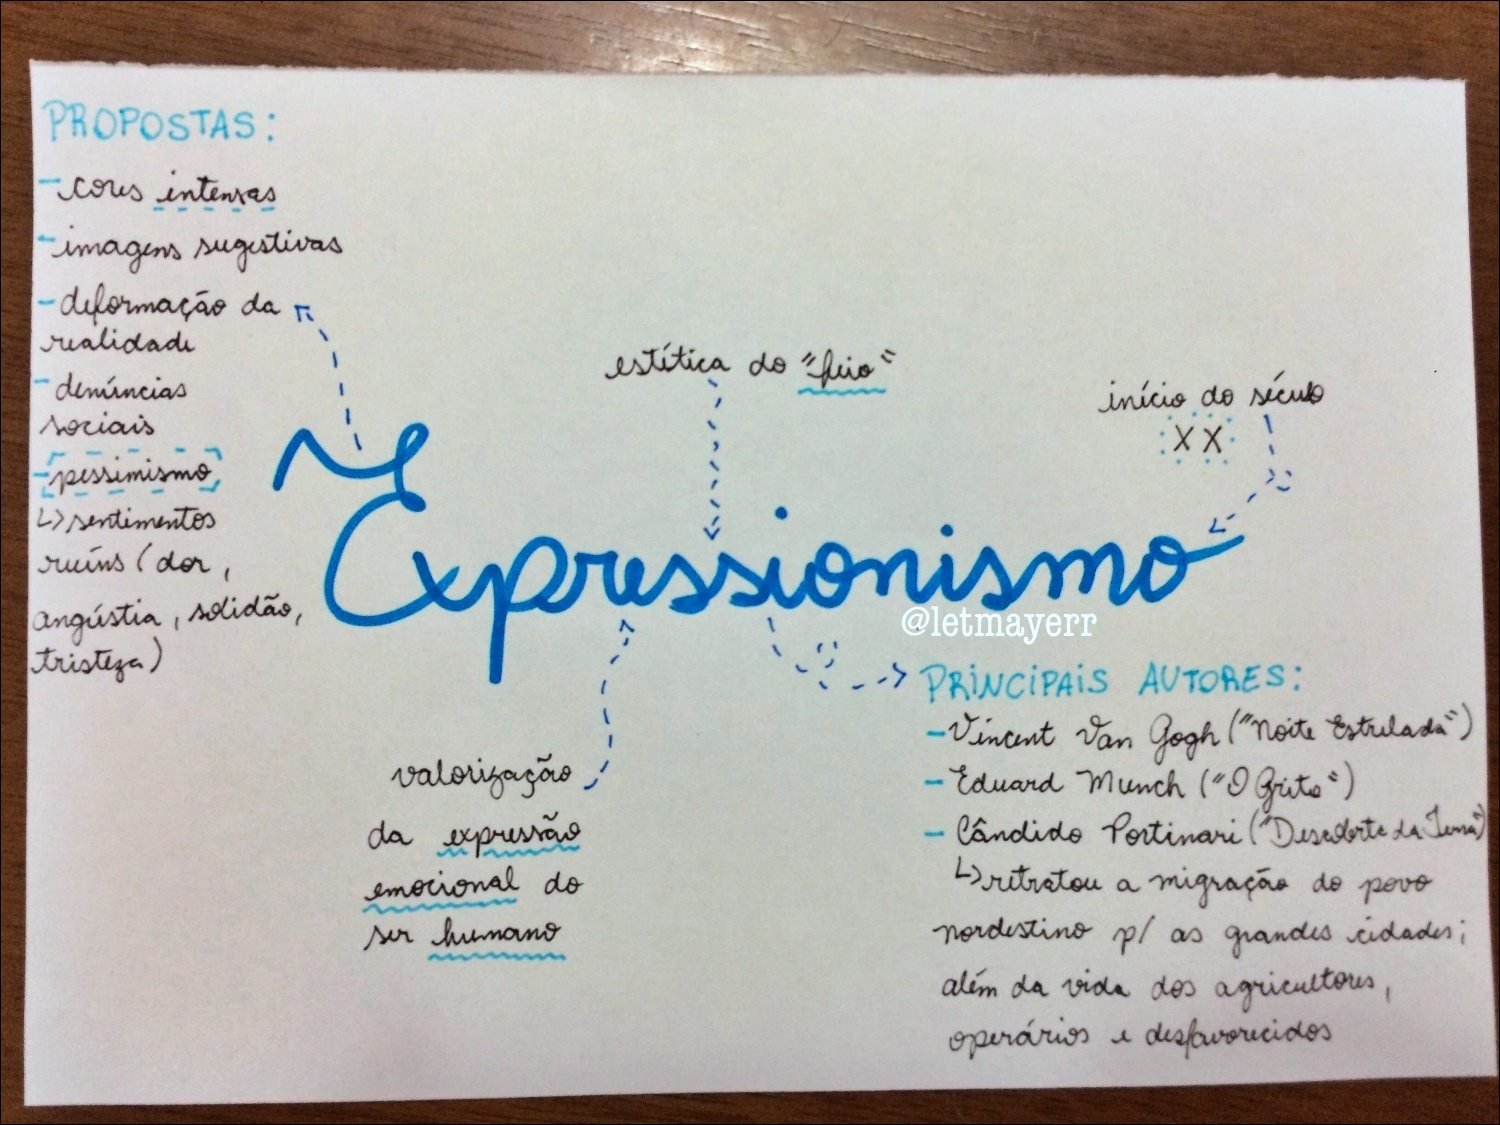 PROPOSTAS:
- cores intensas
- imagens sugestivas
- deformação da
realidade
- denúncias
sociais
- pessimismo
↳ sentimentos
ruíns (dor,
angústia, solidão,
tristeza)
estítica do "feio"
início do século
XX
Expressionismo
@letmayerr
valorização
da expressão
emocional do
ser humano
PRINCIPAIS AUTORES:
- Vincent Van Gogh ("Noite Estrelada")
- Eduard Munch ("O Grito")
- Cândido Portinari ("Descoberta da Terra")
↳ retratou a migração do povo
nordestino p/ as grandes cidades;
além da vida dos agricultores,
operários e desfavorecidos